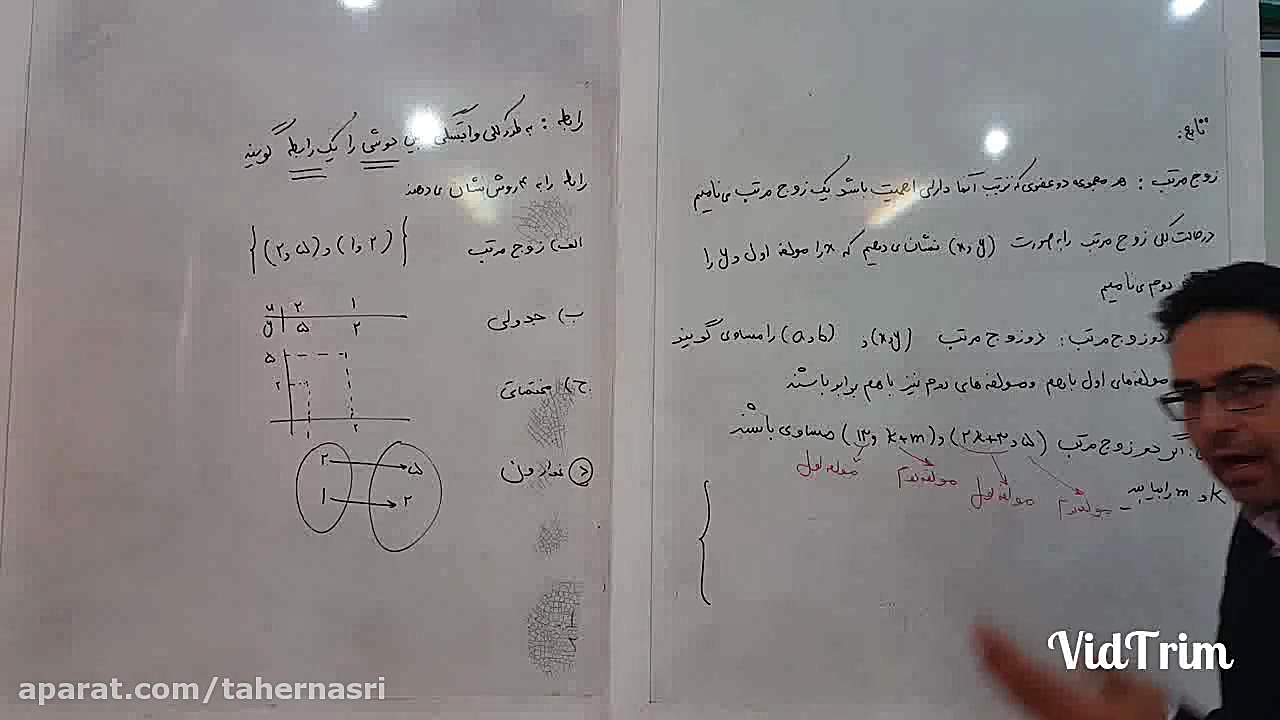 تابع:
زوج مرتب : هر مجموعه دو عضوی که ترتیب آنها دارای اهمیت باشد یک زوج مرتب می نامیم
در حالت کلی زوج مرتب را به صورت (x,y) نشان می دهیم که x را مولفه اول و y را
دوم می نامیم
دو زوج مرتب : دو زوج مرتب (x,y) و (a,b) را مساوی گویند
مولفه های اول با هم و مولفه های دوم نیز با هم برابر باشند
اگر دو زوج مرتب (۵ و ۲k+۳) و (k+m و ۱۳) مساوی باشند
k و m را بیابید
مولفه دوم مولفه اول مولفه دوم مولفه اول
رابطه : به طور کلی وابستگی بین دو شی را یک رابطه گویند
رابطه را به ۴ روش نشان می دهند
الف) زوج مرتب {(۲,۵) و (۱,۲)}
ب) جدولی
x ۲ ۱
y ۵ ۲
ج) مختصاتی
۵
۲
۱ ۲
د) نمودار ون
۲ ۵
۱ ۲
VidTrim
aparat.com/tahernasri